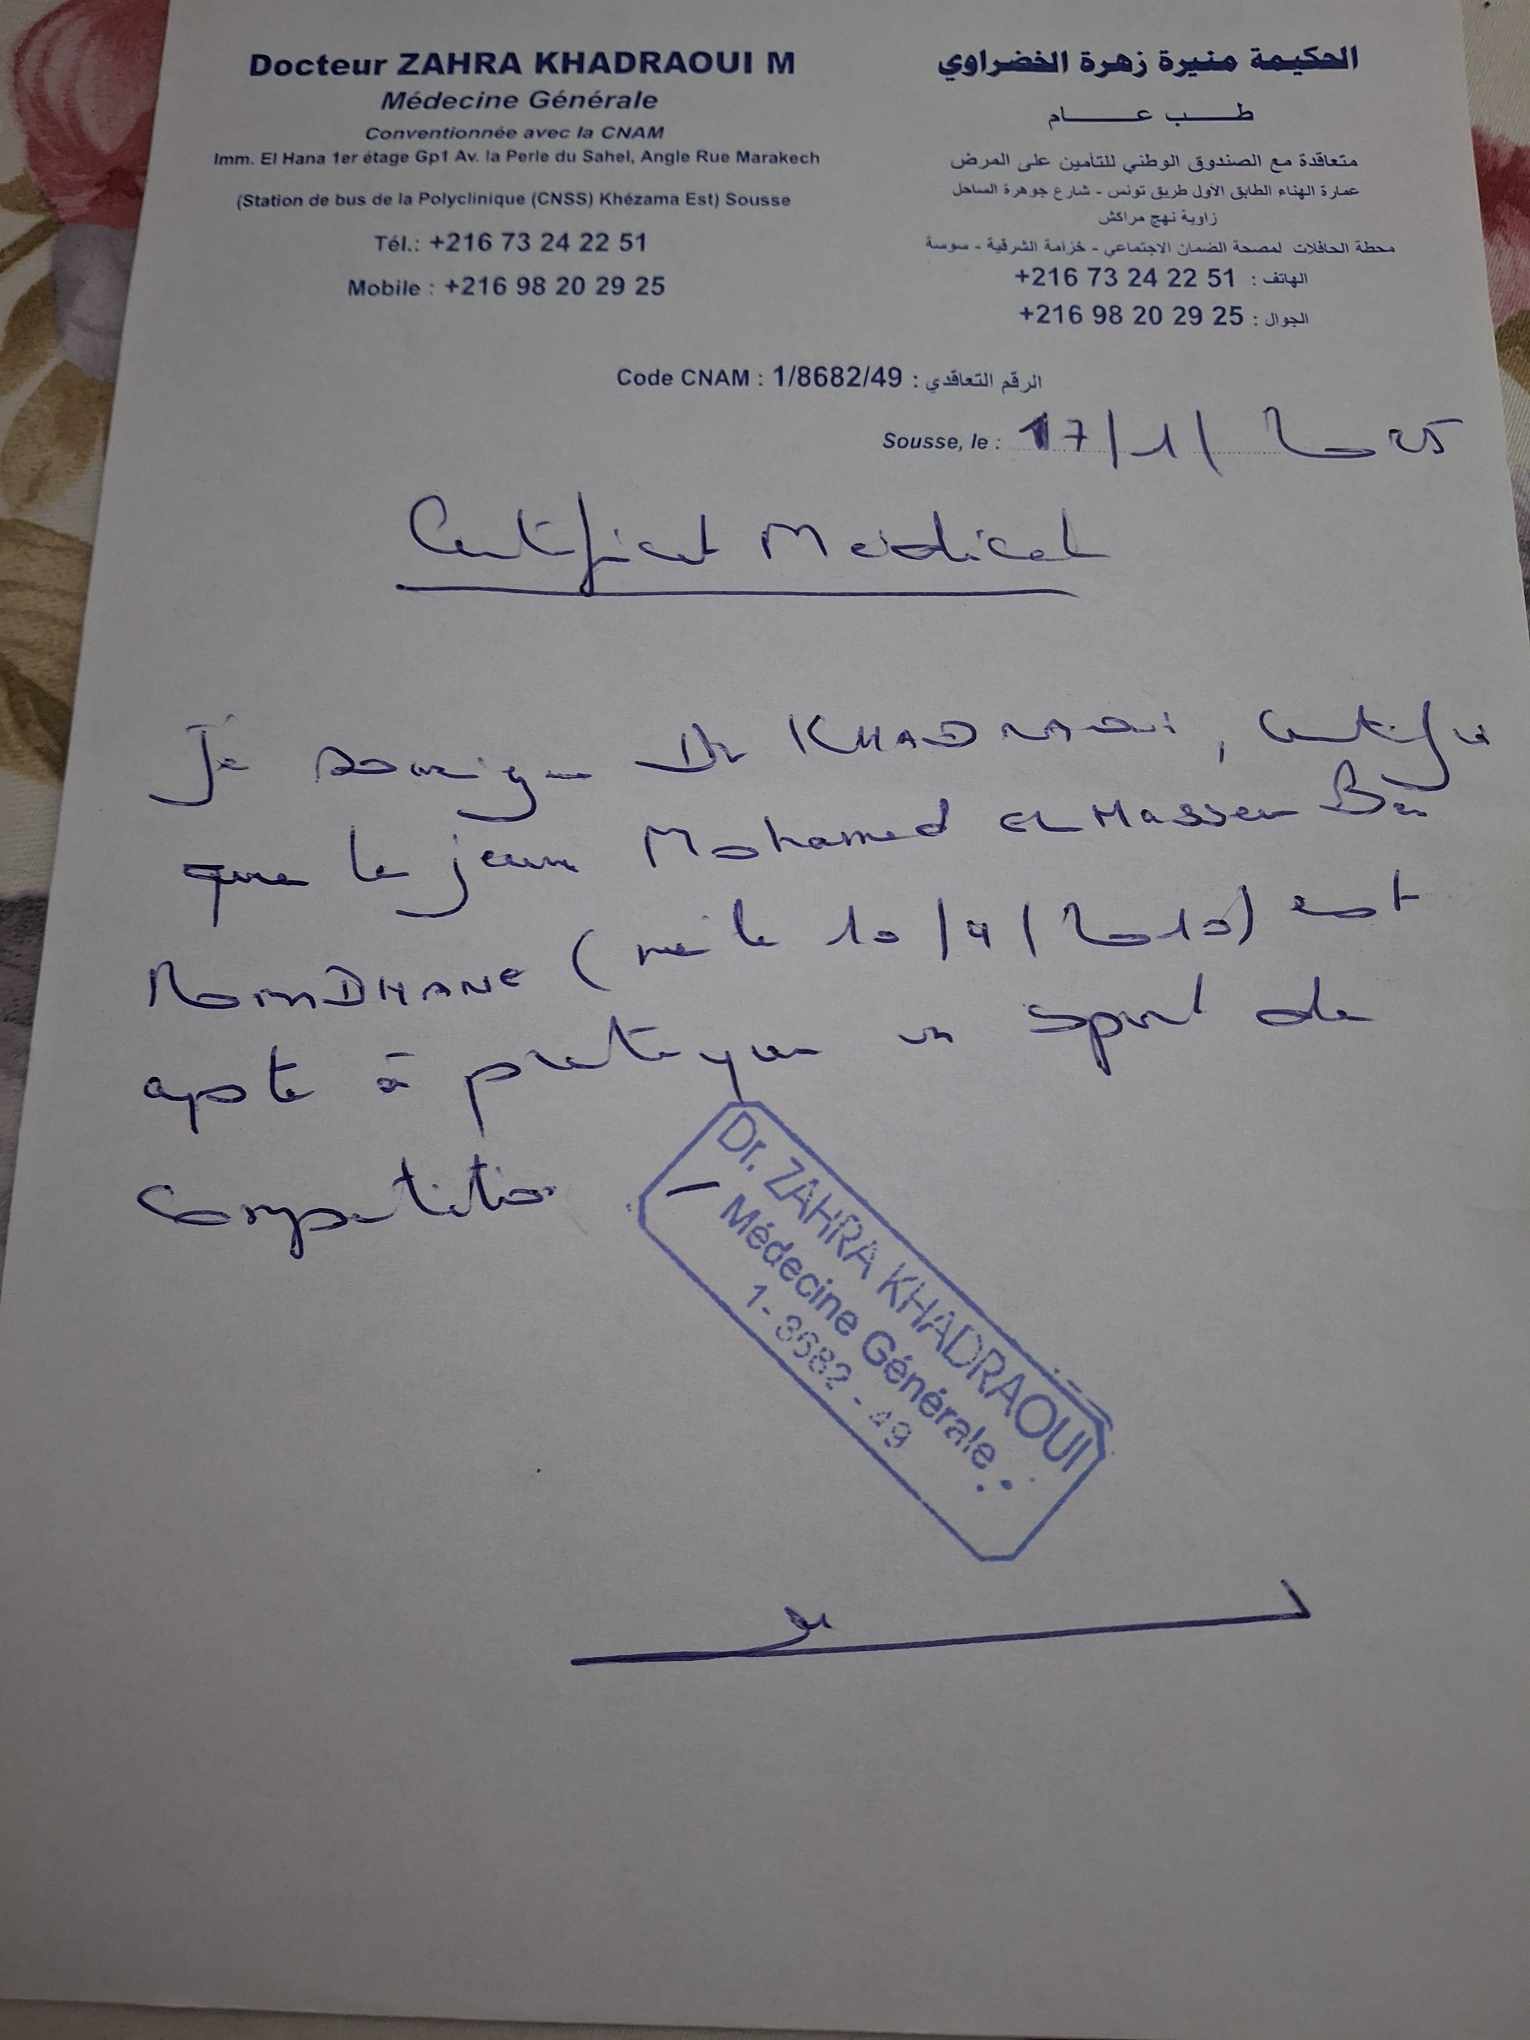 Docteur ZAHRA KHADRAOUI M
Médecine Générale
Conventionnée avec la CNAM
Imm. El Hana 1er étage Gp1 Av. la Perle du Sahel, Angle Rue Marakech
(Station de bus de la Polyclinique (CNSS) Khézama Est) Sousse
Tél.: +216 73 24 22 51
Mobile : +216 98 20 29 25
الحكيمة منيرة زهرة الخضراوي
طب عام
متعاقدة مع الصندوق الوطني للتأمين على المرض
عمارة الهناء الطابق الأول طريق تونس - شارع جوهرة الساحل
زاوية نهج مراكش
محطة الحافلات لمصحة الضمان الاجتماعي - خزامة الشرقية - سوسة
الهاتف : +216 73 24 22 51
الجوال : +216 98 20 29 25
Code CNAM : 1/8682/49 : الرقم التعاقدي
Sousse, le : 17/1/2025
Certificat Medical
Je soussigne Dr KHADRAOUI, certifie
que le jeune Mohamed EL Hassen Ben
ROMDHANE (né le 10/4/2010) est
apte à pratiquer un sport de
competition
Dr. ZAHRA KHADRAOUI
Médecine Générale
1-8682-49